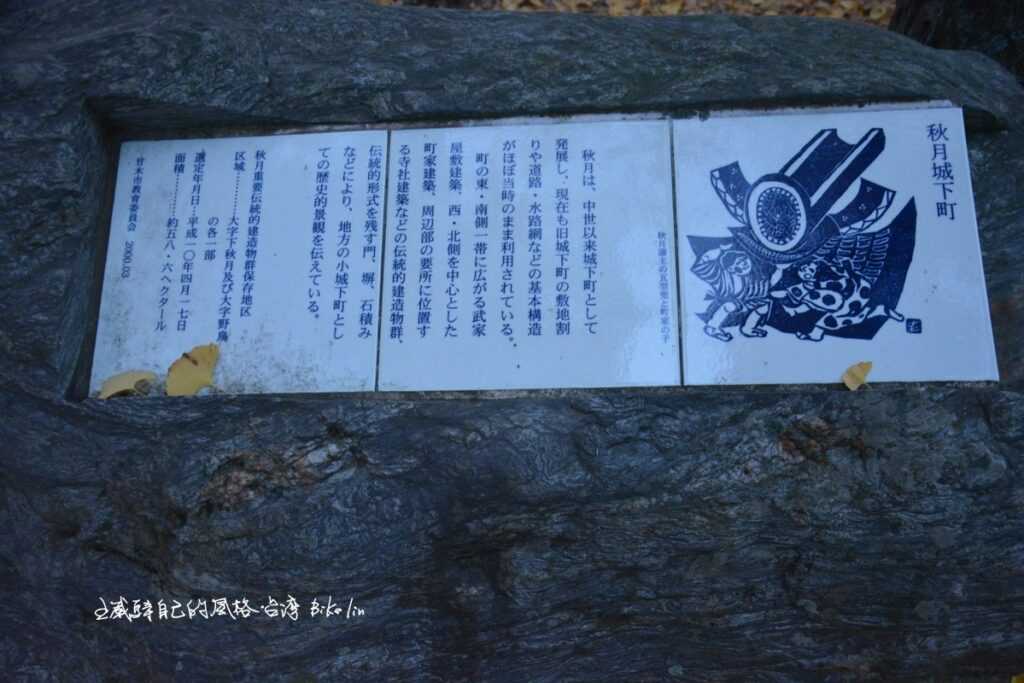 秋月城下町
秋月は、中世以来城下町として
発展し、現在も旧城下町の敷地割
りや道路・水路網などの基本構造
がほぼ当時のまま利用されている。
町の東・南側一帯に広がる武家
屋敷建築、西・北側を中心とした
町家建築、周辺部の要所に位置す
る寺社建築などの伝統的建造物群、
伝統的形式を残す門、塀、石積み
などにより、地方の小城下町とし
ての歴史的景観を伝えている。
秋月重要伝統的建造物群保存地区
区域…………大字下秋月及び大字野鳥
の各一部
選定年月日…平成一〇年四月一七日
面積…………約五八・六ヘクタール
甘木市教育委員会 2000.03
自己的風格.台湾 Biko lin